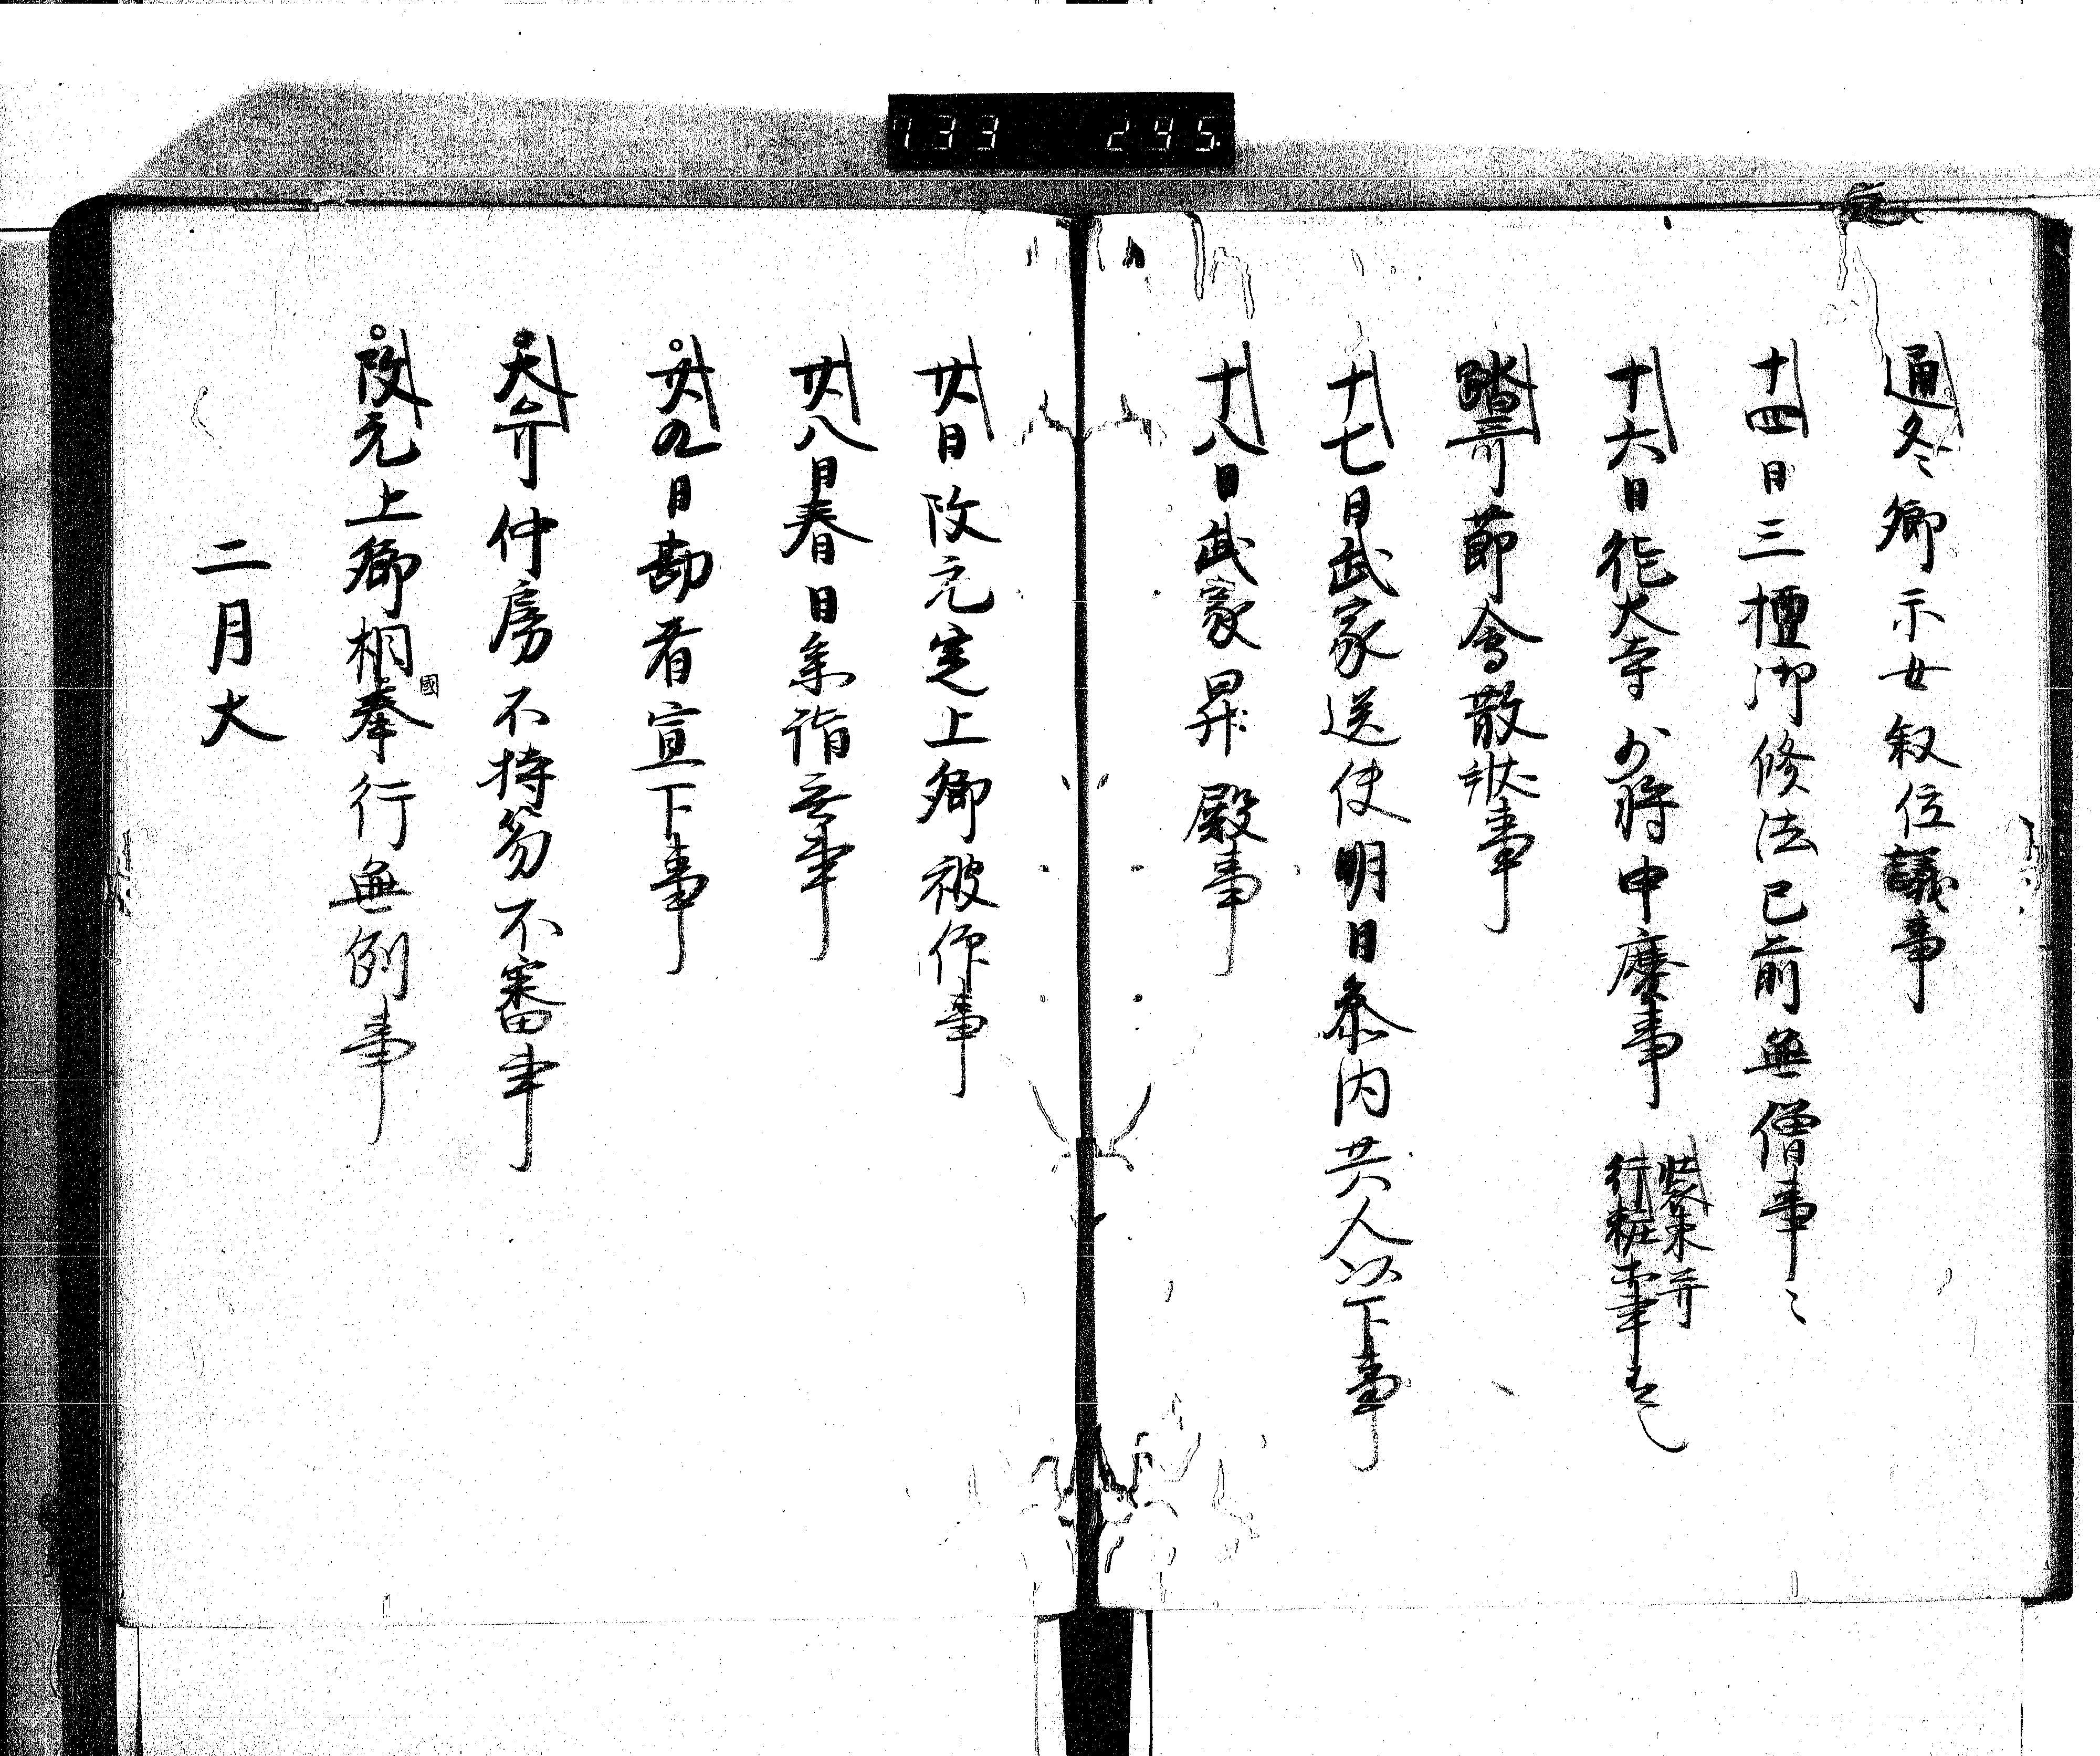 733 245
通冬卿示女叙位議事
十四日三檀御修法已前無僧事〻
十六日徳大寺少将申慶事
装束并
行粧事
踏哥節會散状事
十七日武家送使明日参内共人以下事
十八日武家昇殿事
廿日改元定上卿被仰事
廿八日春日条詣事
廿九日勘者宣下事
大弁仲房不持笏不審事
改元上卿桐奉行無例事
國
二月大